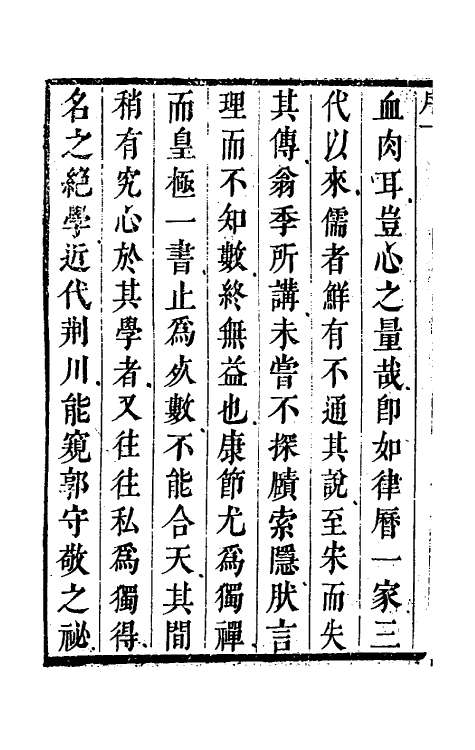 血肉耳豈心之量哉卽如律曆一家三
代以來儒者鮮有不通其說至宋而失
其傳翁季所講未嘗不探賾索隱肰言
理而不知數終無益也康節尤爲獨禪
而皇極一書止爲㱠數不能合天其間
稍有究心於其學者又往往私爲獨得
名之絕學近代荆川能窺郭守敬之祕